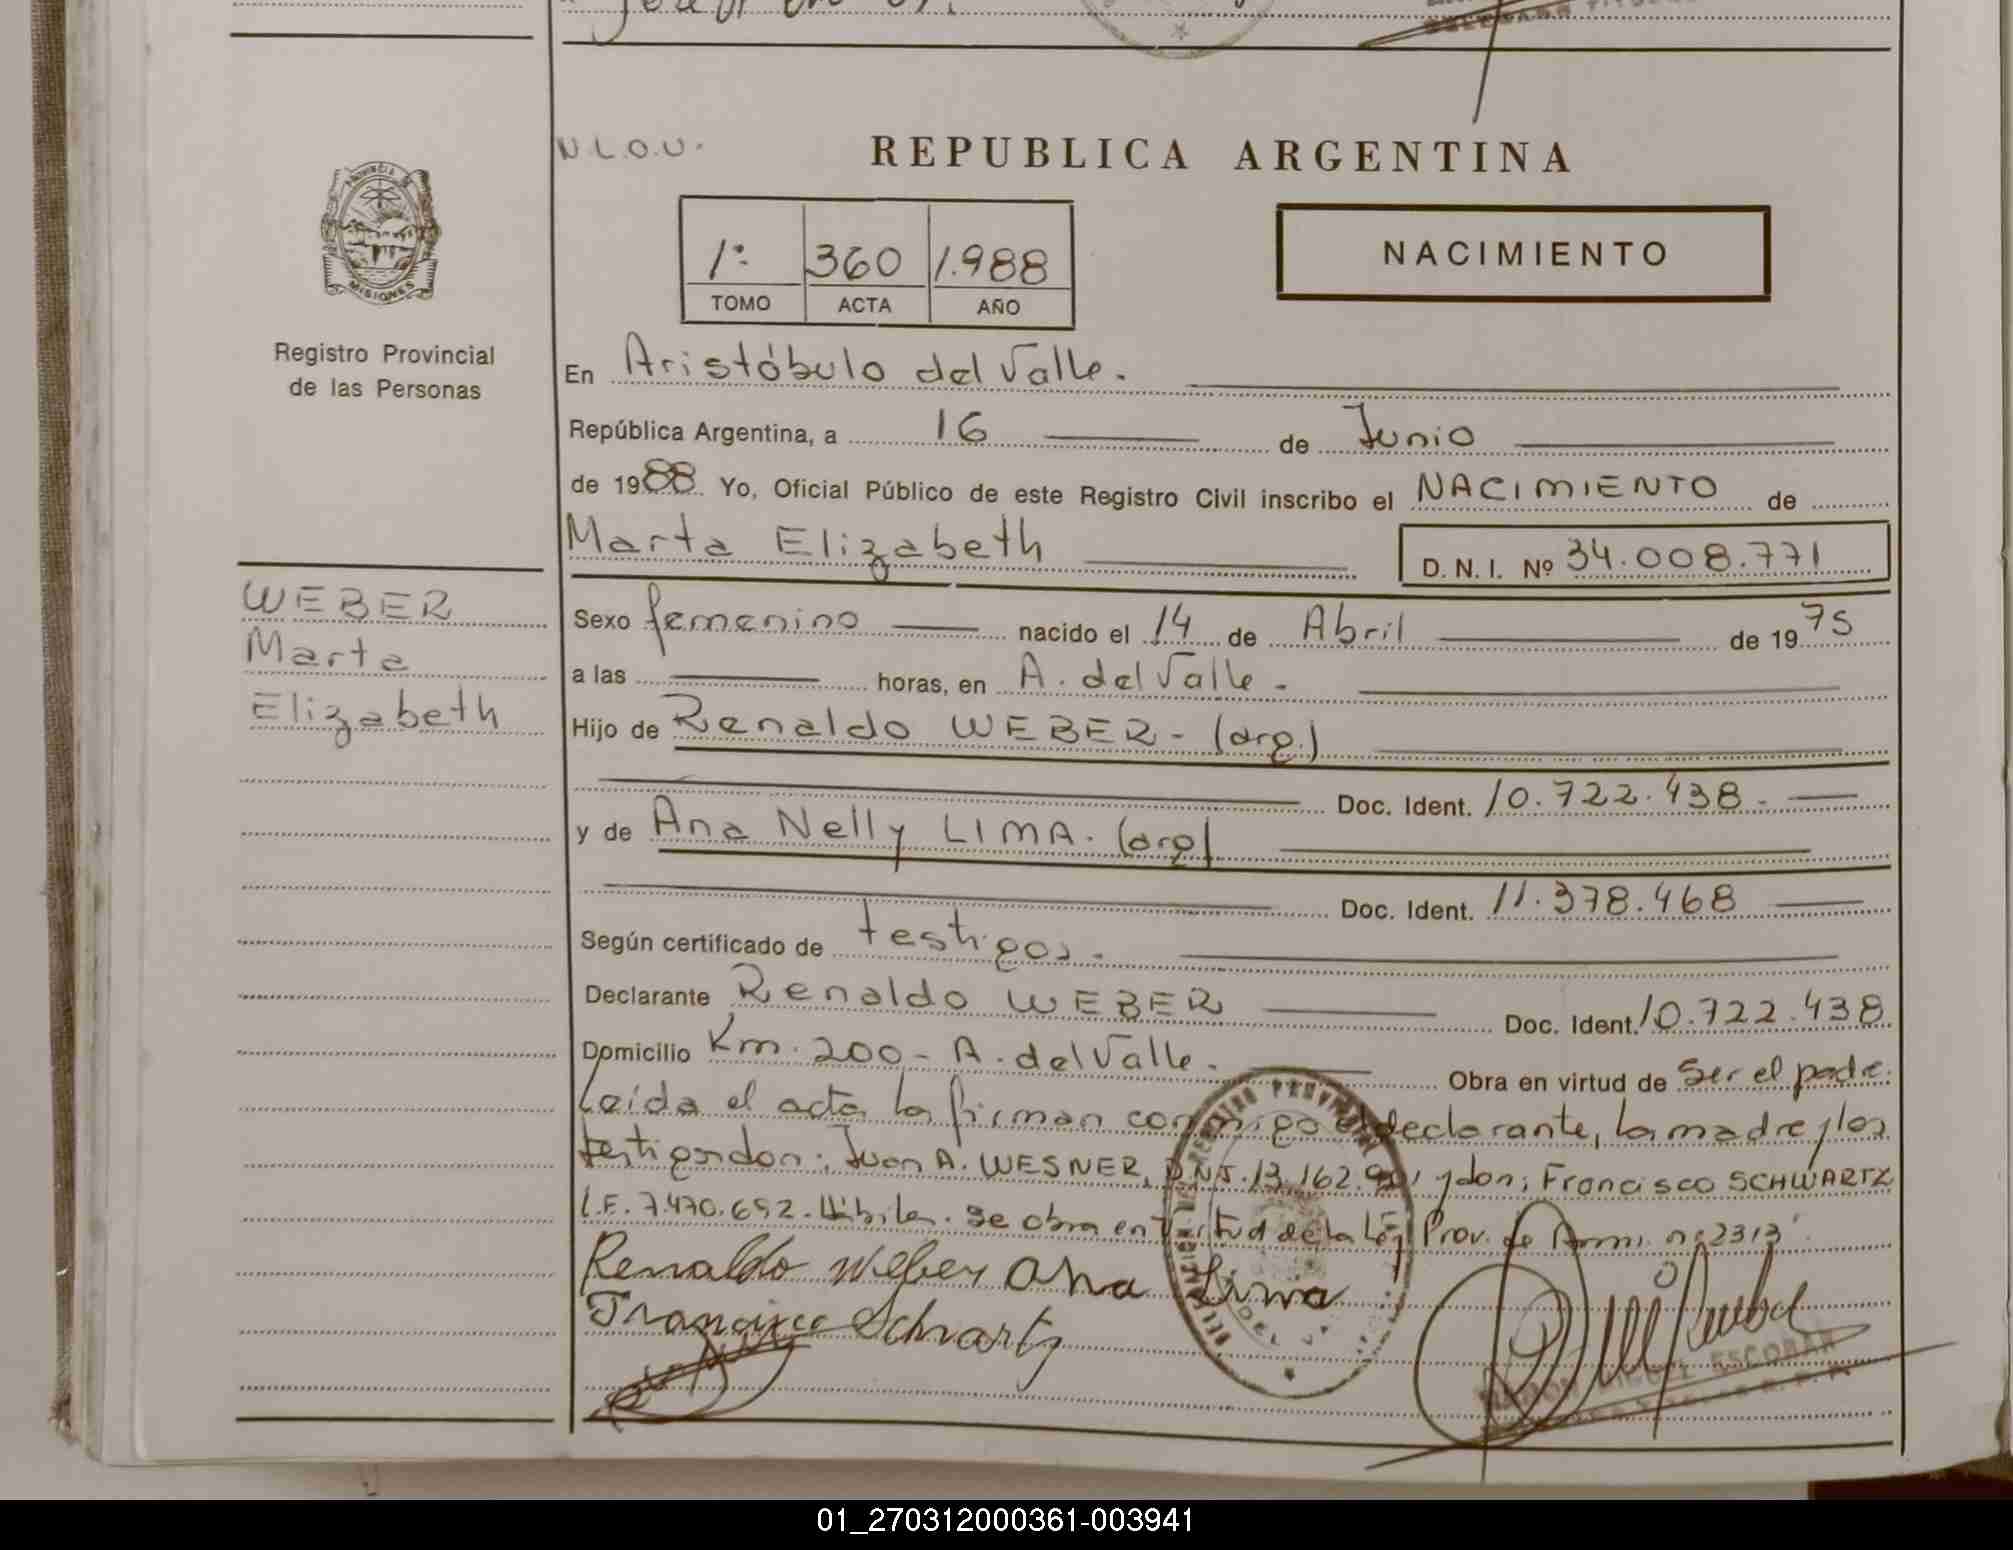 N.L.O.U.
REPUBLICA ARGENTINA
PROVINCIA DE
MISIONES
Registro Provincial
de las Personas
1º 360 1.988
TOMO ACTA AÑO
NACIMIENTO
En Aristóbulo del Valle.
República Argentina, a 16 de Junio
de 1988 Yo, Oficial Público de este Registro Civil inscribo el NACIMIENTO de
Marta Elizabeth D. N. I. Nº 34.008.771
WEBER
Marta
Elizabeth
Sexo femenino nacido el 14 de Abril de 1975
a las horas, en A. del Valle -
Hijo de Renaldo WEBER - (arg.)
Doc. Ident. 10.722.438 -
y de Ana Nelly LIMA. (arg)
Doc. Ident. 11.378.468
Según certificado de testigos -
Declarante Renaldo WEBER Doc. Ident. 10.722.438
Domicilio Km. 200 - A. del Valle - Obra en virtud de Ser el padre.
Leída el acta la firman conmigo el declarante, la madre y los
testigos don: Juan A. WESNER, D.N.I. 13.162. y don; Francisco SCHWARTZ
L.E. 7.470.692. Hábiles. Se obra en virtud de la Ley Prov. de Amn. nº 2313
Renaldo Weber Ana Lima
Francisco Schvartz
REGISTRO PROVINCIAL
DEL
ESCOBAR
01_270312000361-003941